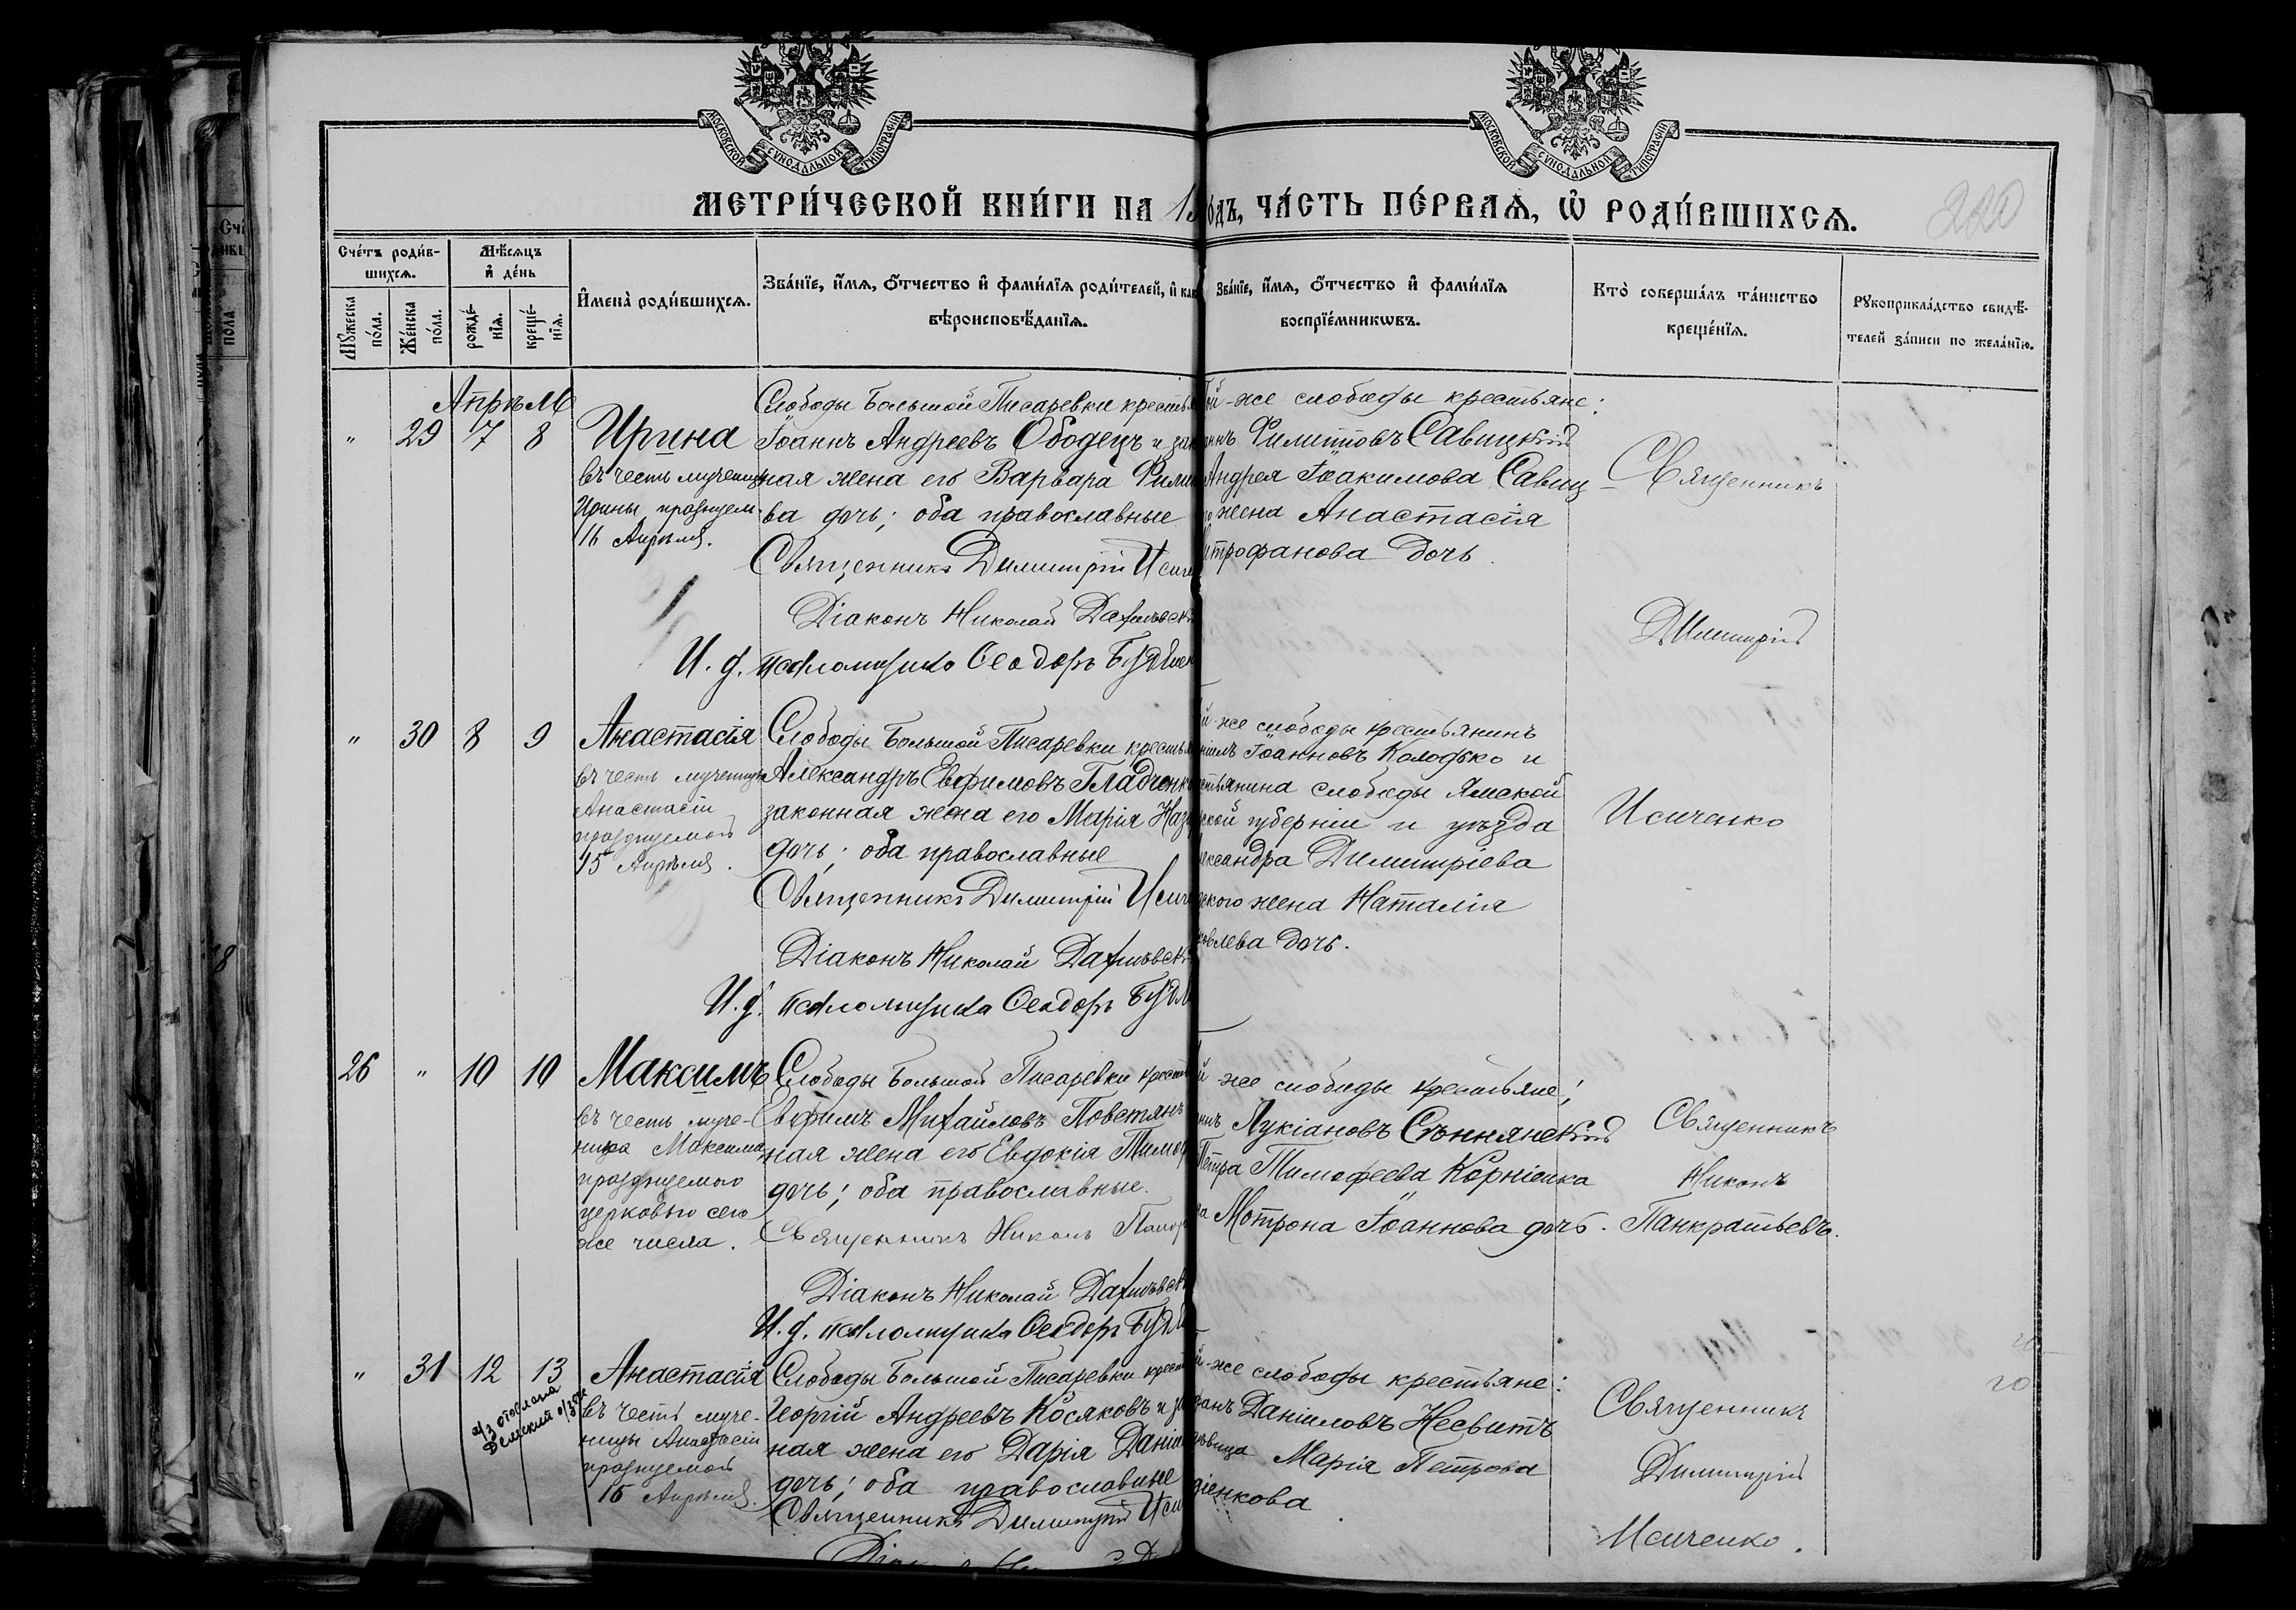 МОСКОВСКОЙ СУНОДАЛЬНОЙ ТИПОГРАФІИ
МОСКОВСКОЙ СУНОДАЛЬНОЙ ТИПОГРАФІИ
МЕТРИ́ЧЕСКОЙ КНИ́ГИ НА 1
одъ, ЧА́СТЬ ПЕ́РВАѦ, Ѡ РОДИ́ВШИХСѦ.
220
Сче́тъ роди́в-
шихсѧ.
Мѣ́сѧцъ
и҆ де́нь
Мꙋ́жеска по́ла.
Же́нска по́ла.
рожде́-
нїѧ.
креще́-
нїѧ.
И҆мена̀ роди́вшихсѧ.
Зва́нїе, и҆́мѧ, ѻ҆́тчество и҆ фами́лїѧ роди́телей, и҆ как
вѣроисповѣ́данїѧ.
Зва́нїе, и҆́мѧ, ѻ҆́тчество и҆ фами́лїѧ
воспрїе́мникѡвъ.
Кто̀ соверша́лъ та́инство
креще́нїѧ.
Рꙋкоприкла́дство свидѣ́-
телей за́писи по жела́нїю.
Апрѣль
" 29 7 8
Ирина
въ честь мучениц
Ирины празднуем.
16 Апрѣля.
Слободы Большой Писаревки крестья
Іоаннъ Андреевъ Ободецъ и зак
ная жена его Варвара Фили
ва дочь; оба православные
Священникъ Димитрій Исич
Діаконъ Николай
И. д. псаломщика Ѳеодоръ
ой-же слободы крестьяне:
Филипповъ Савицкій
Андрея Іоакимова Савиц
жена Анастасія
трофанова дочь.
Священникъ
Димитрій
Исиченко
" 30 8 9
Анастасія
въ честь мученицы
Анастасіи
празднуемой
15 Апрѣля.
Слободы Большой Писаревки крестья
Александръ Евфимовъ Гладченко
законная жена его Марія Наза
дочь; оба православные
Священникъ Димитрій Исич
Діаконъ Николай
И. д. псаломщика Ѳеодоръ
й-же слободы крестьянинъ
ніилъ Іоанновъ Колодько и
стьянина слободы Ямской
ской губерніи и уѣзда
ександра Димитріева
ского жена Наталія
ковлева дочь.
26 " 10 10
Максимъ
въ честь муче-
ника Максима
празднуемаго
церковью сего
же числа.
Слободы Большой Писаревки крест
Евфимъ Михайловъ Повстянъ
ная жена его Евдокія Тимоф
дочь; оба православные.
Священникъ Никонъ Панкр
Діаконъ Николай
И. д. псаломщика Ѳеодоръ
й же слободы крестьяне;
Лукіановъ Стьннянскій
Петра Тимофеева Корніенка
на Мотрона Іоаннова дочь.
Священникъ
Никонъ
Панкратьевъ.
" 31 12 13
Анастасія
въ честь муче-
ницы Анастасіи
празднуемой
15 Апрѣля.
Слободы Большой Писаревки крест
Георгій Андреевъ Косяковъ и за
ная жена его Дарія Даніи
дочь; оба православные
Священникъ Димитрій Иси
й-же слободы крестьяне:
фанъ Даніиловъ Несвитъ
вица Марія Петрова
діенкова
Священникъ
Димитрій
Исиченко.